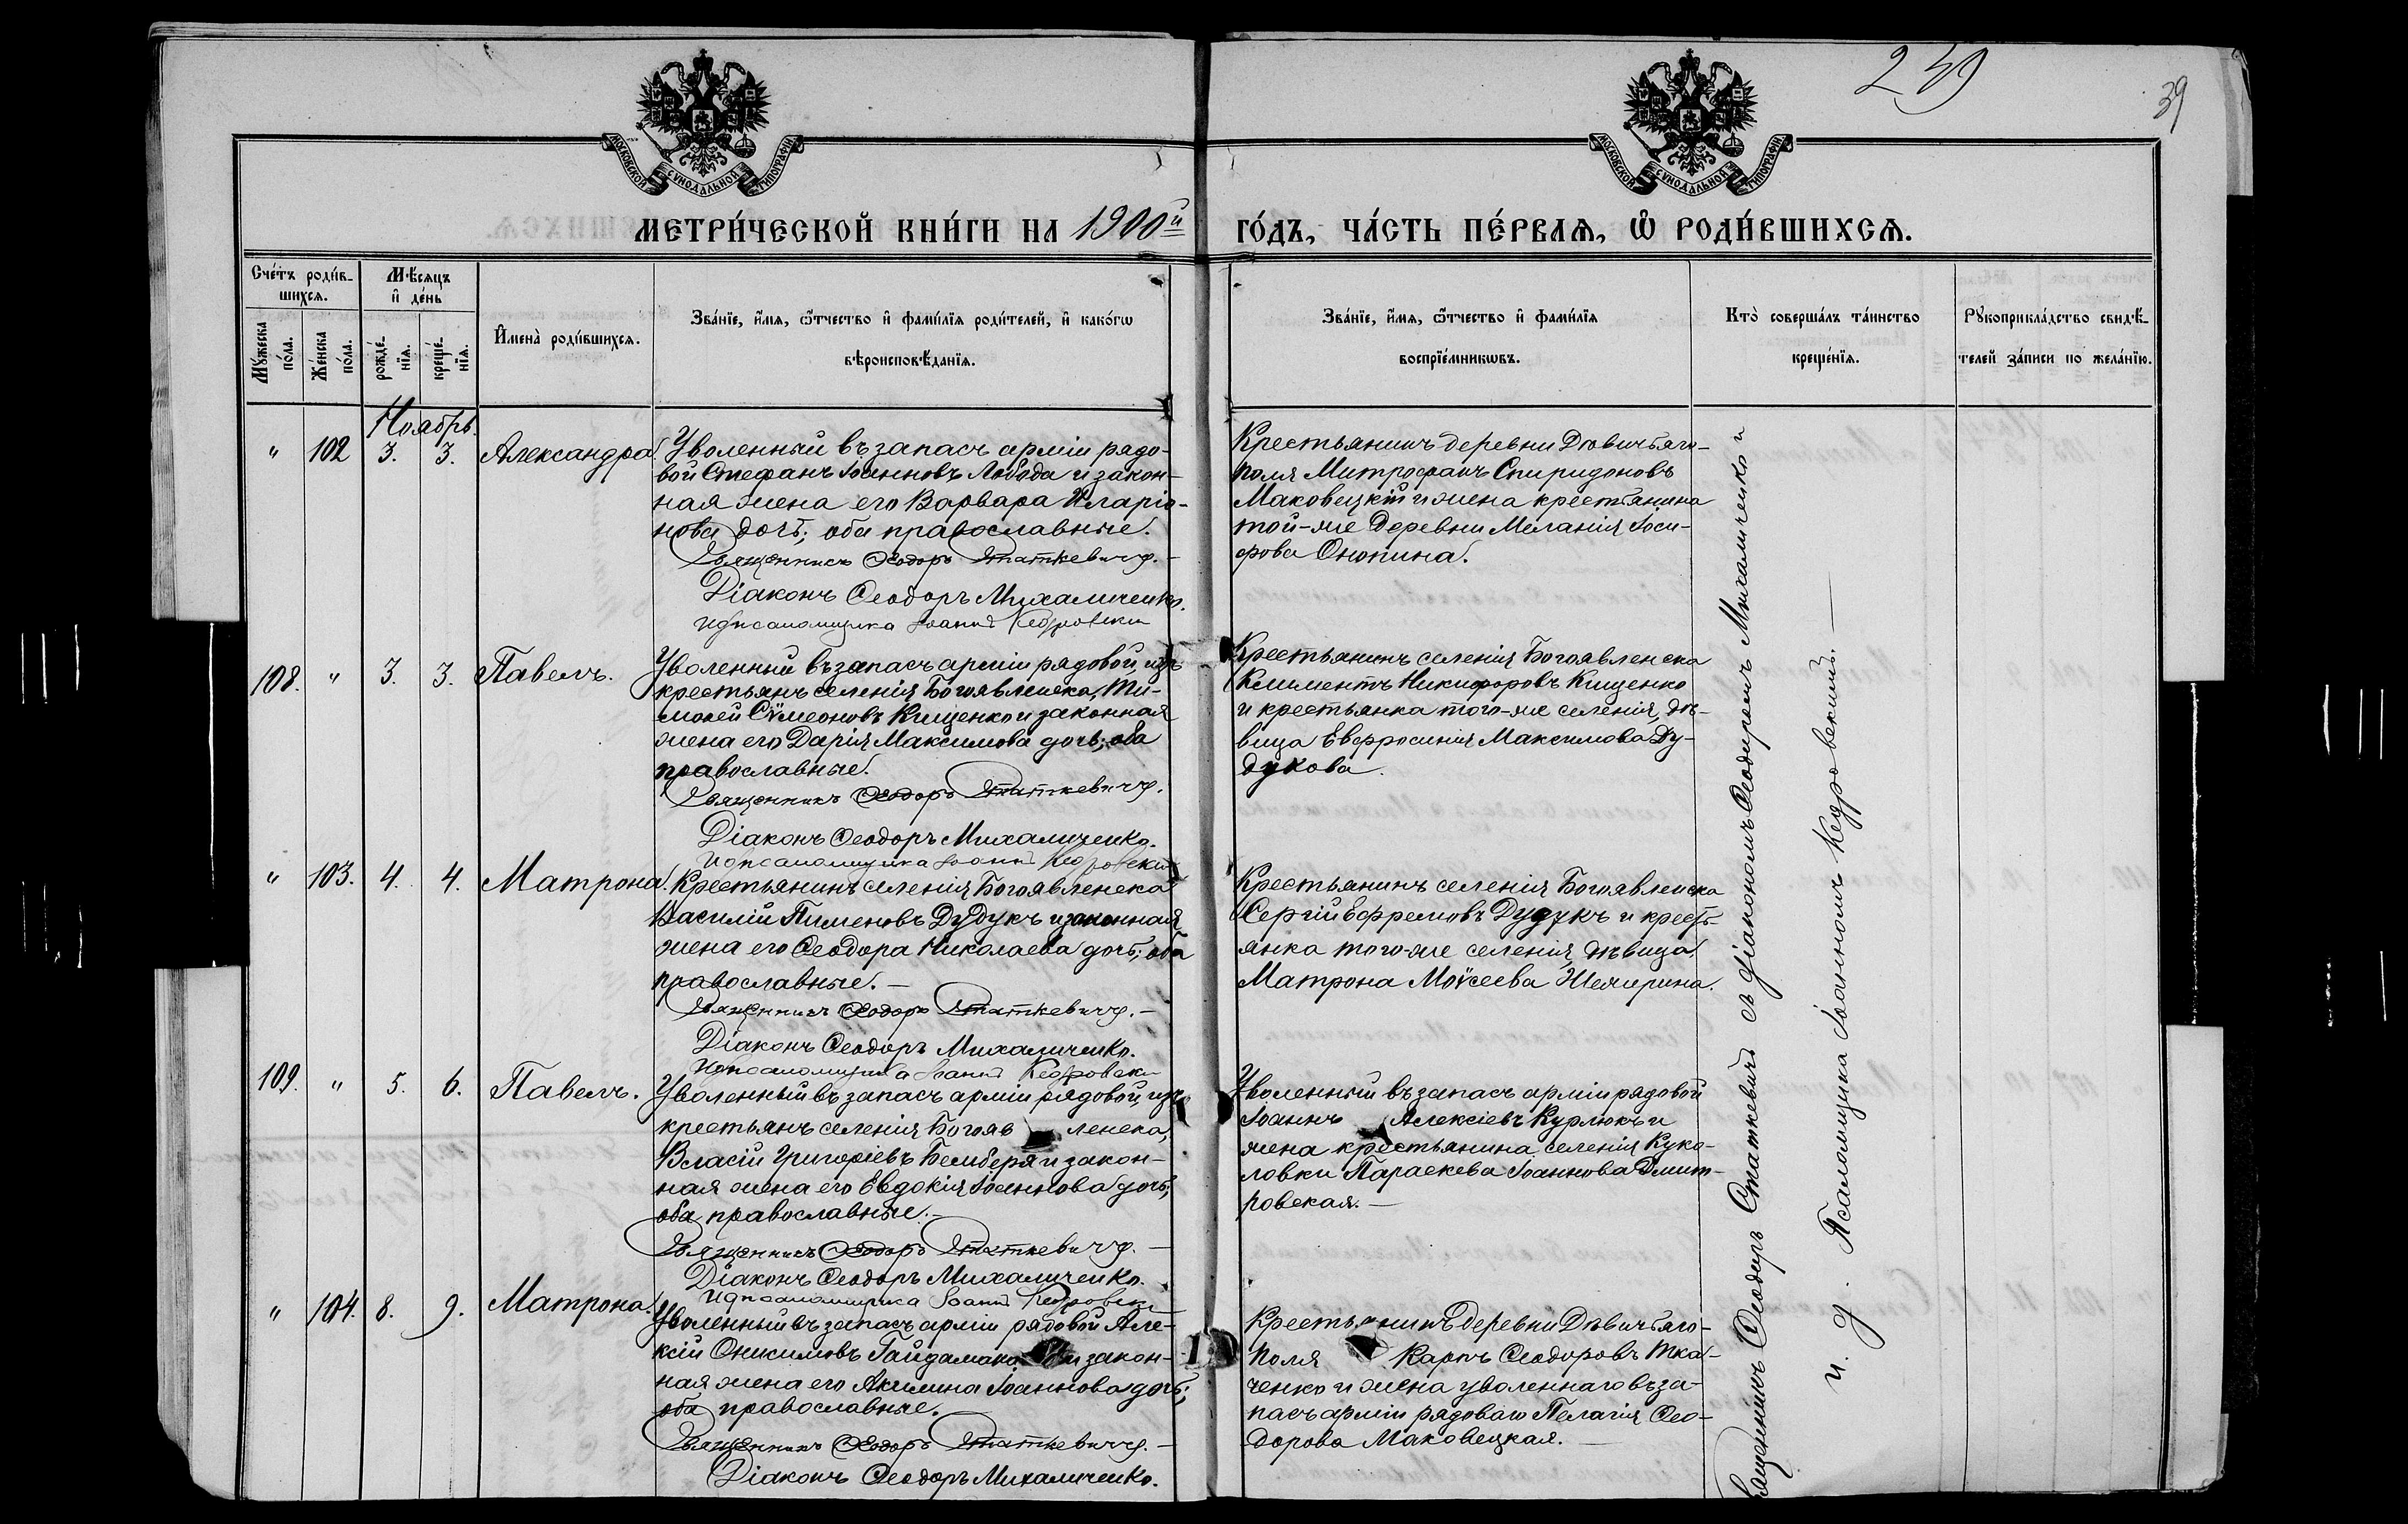 249
39
МОСКОВСКОЙ СѴНОДАЛЬНОЙ ТИПОГРАФІИ
МОСКОВСКОЙ СѴНОДАЛЬНОЙ ТИПОГРАФІИ
МЕТРИ́ЧЕСКОЙ КНИ́ГИ НА 1900й ГО́ДЪ, ЧА́СТЬ ПЕ́РВАѦ, Ѡ҆ РОДИ́ВШИХСѦ.
Сче́тъ роди́в-
шихсѧ.
Мѣ́сѧцъ
и҆ де́нь
Мꙋ́жеска
по́ла.
Же́нска
по́ла.
рожде́-
нїѧ.
креще́-
нїѧ.
И҆мена̀ роди́вшихсѧ.
Зва́нїе, и҆́мѧ, ѻ҆́тчество и҆ фамі́лїѧ роди́телей, и҆ како́гѡ
вѣроисповѣ́данїѧ.
Зва́нїе, и҆́мѧ, ѻ҆́тчество и҆ фамі́лїѧ
воспрїе́мникѡвъ.
Кто̀ соверша́лъ та́инство
креще́нїѧ.
Рꙋкоприкла́дство свидѣ́-
телей за́писи по жела́нїю.
Ноябрь.
" 102 3. 3. Александра.
Уволенный въ запасъ арміи рядо-
вой Стефанъ Іоанновъ Лобода и закон-
ная жена его Варвара Иларіо-
нова дочь; оба православные.
Священникъ Ѳеодоръ Статкевичъ. —
Діаконъ Ѳеодоръ Михаличенко.
И д псаломщика Іоаннъ Кедровскій
Крестьянинъ деревни Дѣвичьяго-
поля Митрофанъ Спиридоновъ
Маковецкій и жена крестьянина
той-же деревни Меланія Іоси-
фова Онопина.
108. " 3. 3. Павелъ.
Уволенный въ запасъ арміи рядовой, изъ
крестьянъ селенія Богоявленска, Ти-
моѳей Сѵмеоновъ Кищенко и законная
жена его Дарія Максимова дочь; оба
православные.
Священникъ Ѳеодоръ Статкевичъ.
Діаконъ Ѳеодоръ Михаличенко.
И д псаломщика Іоаннъ Кедровскій
Крестьянинъ селенія Богоявленска
Климентъ Никифоровъ Кищенко
и крестьянка того-же селенія, дѣ-
вица Евфросинія Максимова Ду-
дукова.
" 103. 4. 4. Матрона.
Крестьянинъ селенія Богоявленска
Василій Пименовъ Дудукъ и законная
жена его Ѳеодора Николаева дочь; оба
православные. —
Священникъ Ѳеодоръ Статкевичъ. —
Діаконъ Ѳеодоръ Михаличенко.
И д псаломщика Іоаннъ Кедровскій
Крестьянинъ селенія Богоявленска
Сергій Ефремовъ Дудукъ и кресть-
янка того-же селенія, дѣвица
Матрона Моѵсеева
109. " 5. 6. Павелъ.
Уволенный въ запасъ арміи рядовой, изъ
крестьянъ селенія Богояв ленска,
Власій Григоріевъ Бемберя и закон-
ная жена его Евдокія Іоаннова дочь;
оба православные. —
Священникъ Ѳеодоръ Статкевичъ. —
Діаконъ Ѳеодоръ Михаличенко.
И д псаломщика Іоаннъ Кедровскій
Уволенный въ запасъ арміи рядовой
Іоаннъ Алексіевъ Курлюкъ и
жена крестьянина селенія Куко-
ловки Параскева Іоаннова Дмит-
ровская. —
" 104. 8. 9. Матрона.
Уволенный въ запасъ арміи рядовой Але-
ксій Онисимовъ Гайдамака и закон-
ная жена его Акилина Іоаннова дочь;
оба православные.
Священникъ Ѳеодоръ Статкевичъ. —
Діаконъ Ѳеодоръ Михаличенко.
Крестьянинъ деревни Дѣвичьяго-
поля Карпъ Ѳеодоровъ Тка-
ченко и жена уволеннаго въ за-
пасъ арміи рядоваго Пелагія Ѳео-
дорова Маковецкая. —
Священникъ Ѳеодоръ Статкевичъ съ діакономъ Ѳеодоромъ Михаличенко и
и. д. Псаломщика Іоанномъ Кедровскимъ. —